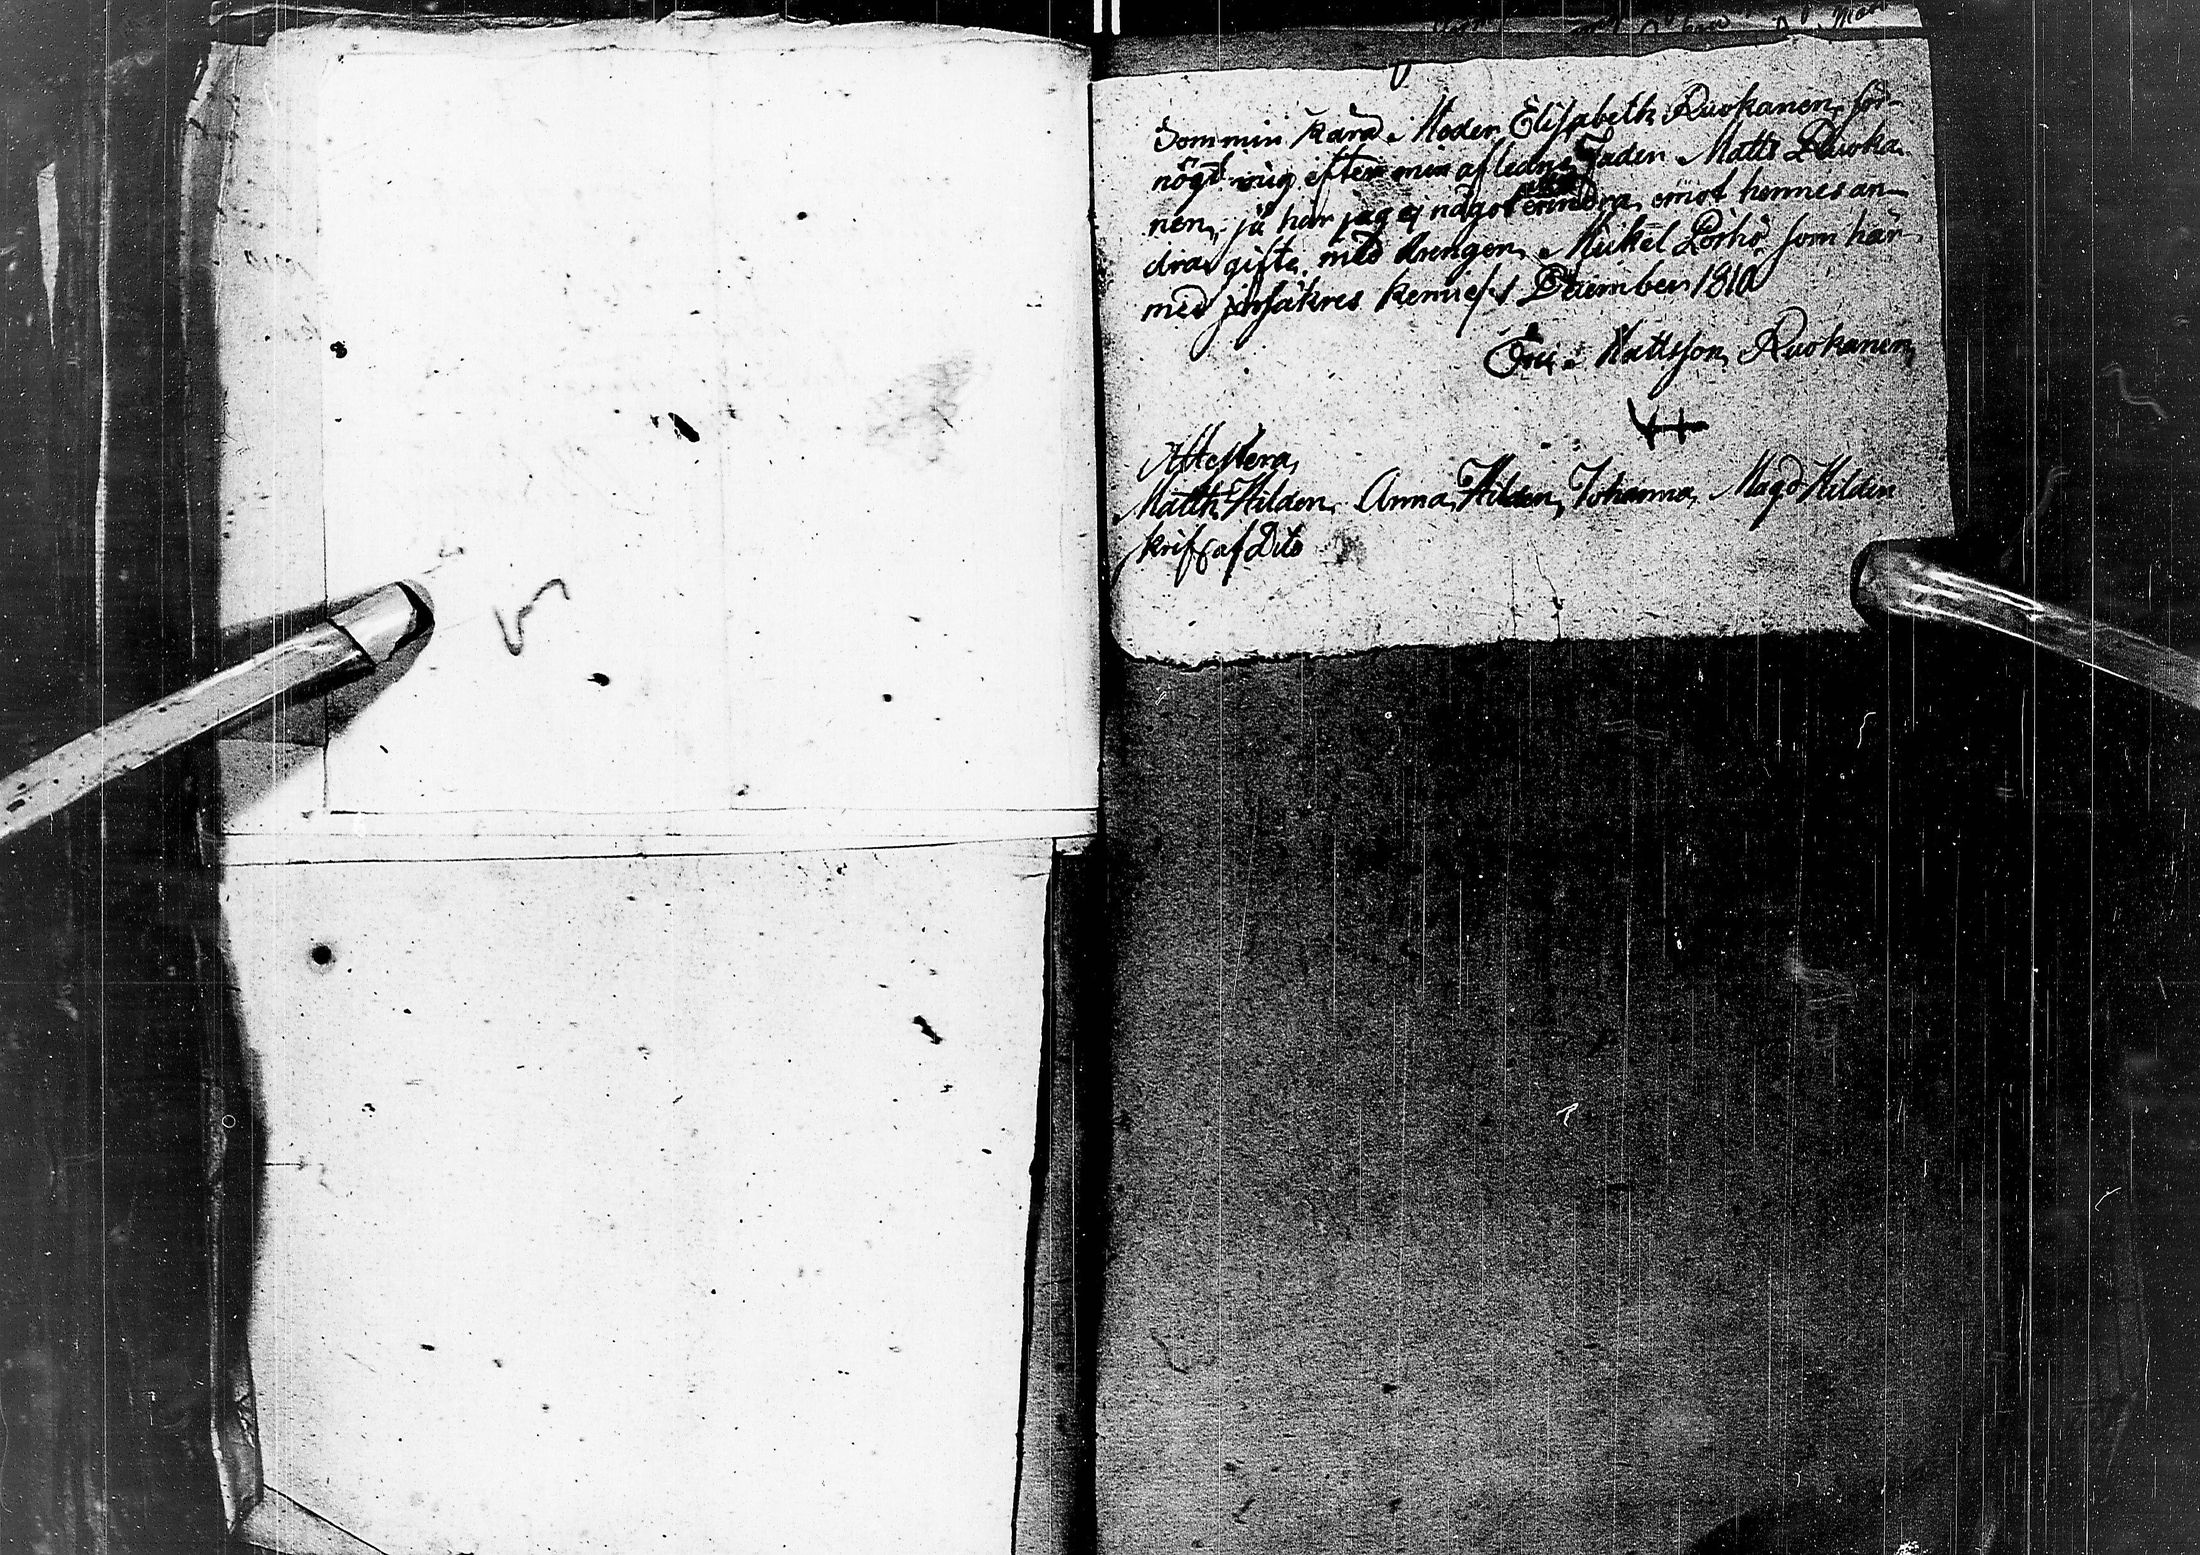 Som min kära Moder Elisabeth Ruokanen, för-
nögt mig efter min afledne Fader Matts Ruoka-
nen, så har jag ej något erindra emot hennes an-
dra gifte med drengen Mickel Pörhö som här
med försäkres Kemi d. 1 December 1810
Eric Mattsson Ruokanen
Attestera
Matth Hilden Anna Hilden, Johanna Magd Hilden
Skrif af Dito